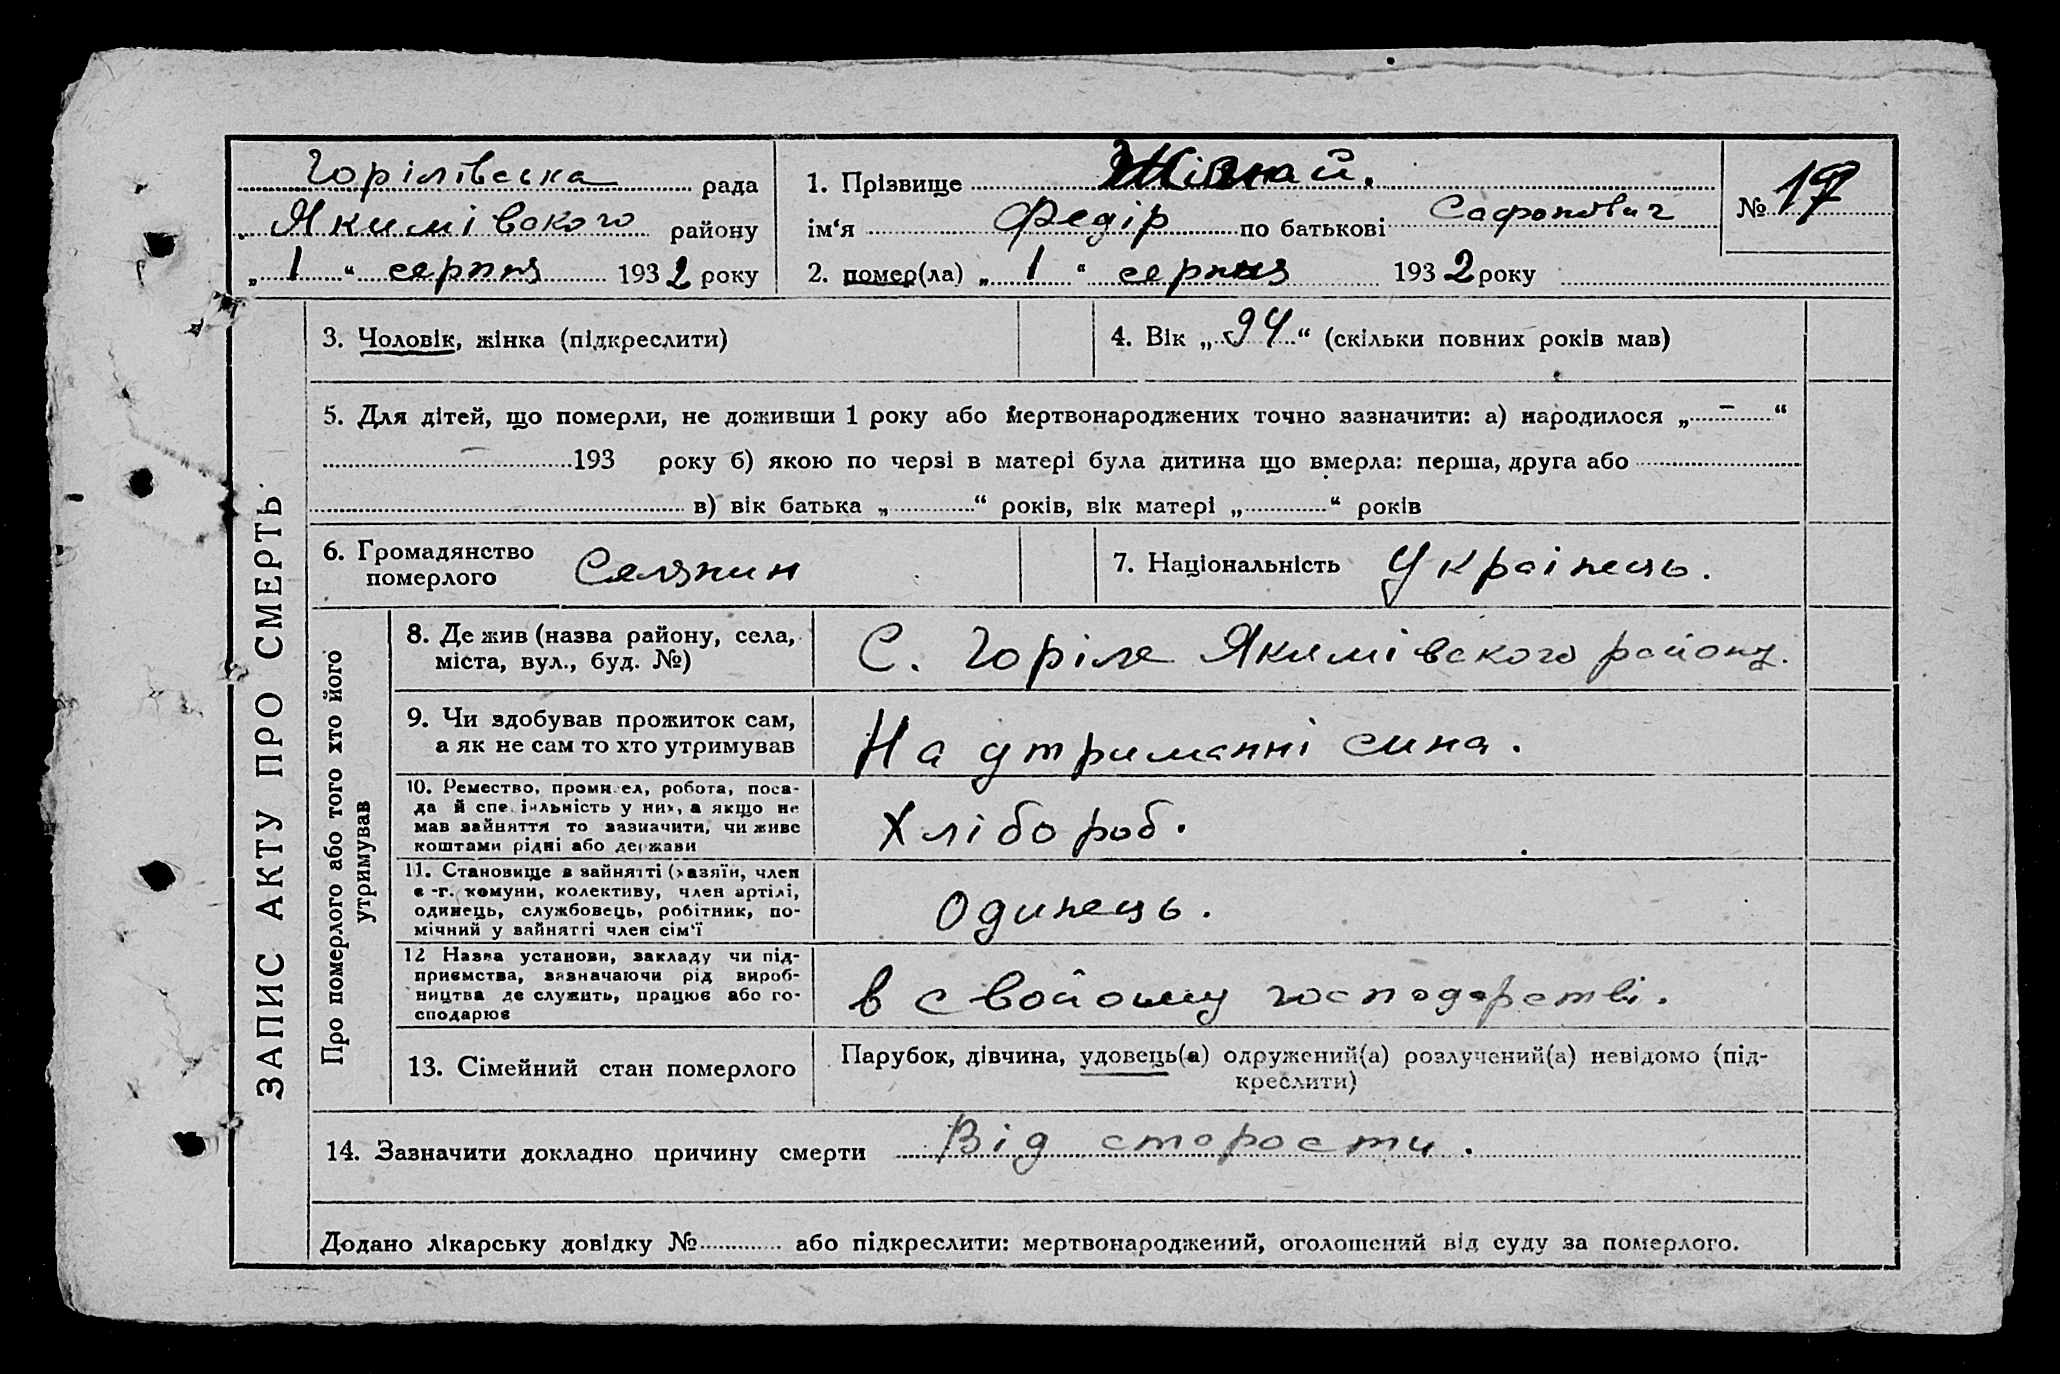 Горілівська рада
Якимівского району
„ 1 “ серпня 1932 року
1. Прізвище
ім‘я Федір по батькові Сафонович
№ 17
2. помер(ла) „ 1 “ серпня 1932 року
3. Чоловік, жінка (підкреслити)
4. Вік „ 94 “ (скільки повних років мав)
5. Для дітей, що померли, не доживши 1 року або мертвонароджених точно зазначити: а) народилося „ – “
– 193 року б) якою по черзі в матері була дитина що вмерла: перша, друга або
в) вік батька „ “ років, вік матері „ “ років
6. Громадянство
померлого Селянин
7. Національність Українець.
ЗАПИС АКТУ ПРО СМЕРТЬ
Про померлого або того хто його
утримував
8. Де жив (назва району, села,
міста, вул., буд. №)
С. Горіле Якимівского району.
9. Чи здобував прожиток сам,
а як не сам то хто утримував
На утриманні сина.
10. Ремество, промисел, робота, поса-
да й спеціяльність у них, а якщо не
мав зайняття то зазначити, чи живе
коштами рідні або держави
Хлібороб.
11. Становище в зайнятті (хазяїн, член
с-г. комуни, колективу, член артілі,
одинець, службовець, робітник, по-
мічний у зайнятті член сім‘ї
Одинець.
12 Назва установи, закладу чи під-
приємства, зазначаючи рід вироб-
ництва де служить, працює або го-
сподарює
в свойому господарстві.
13. Сімейний стан померлого
Парубок, дівчина, удовець(а) одружений(а) розлучений(а) невідомо (під-
креслити)
14. Зазначити докладно причину смерти Від старости.
Додано лікарську довідку № або підкреслити: мертвонароджений, оголошений від суду за померлого.